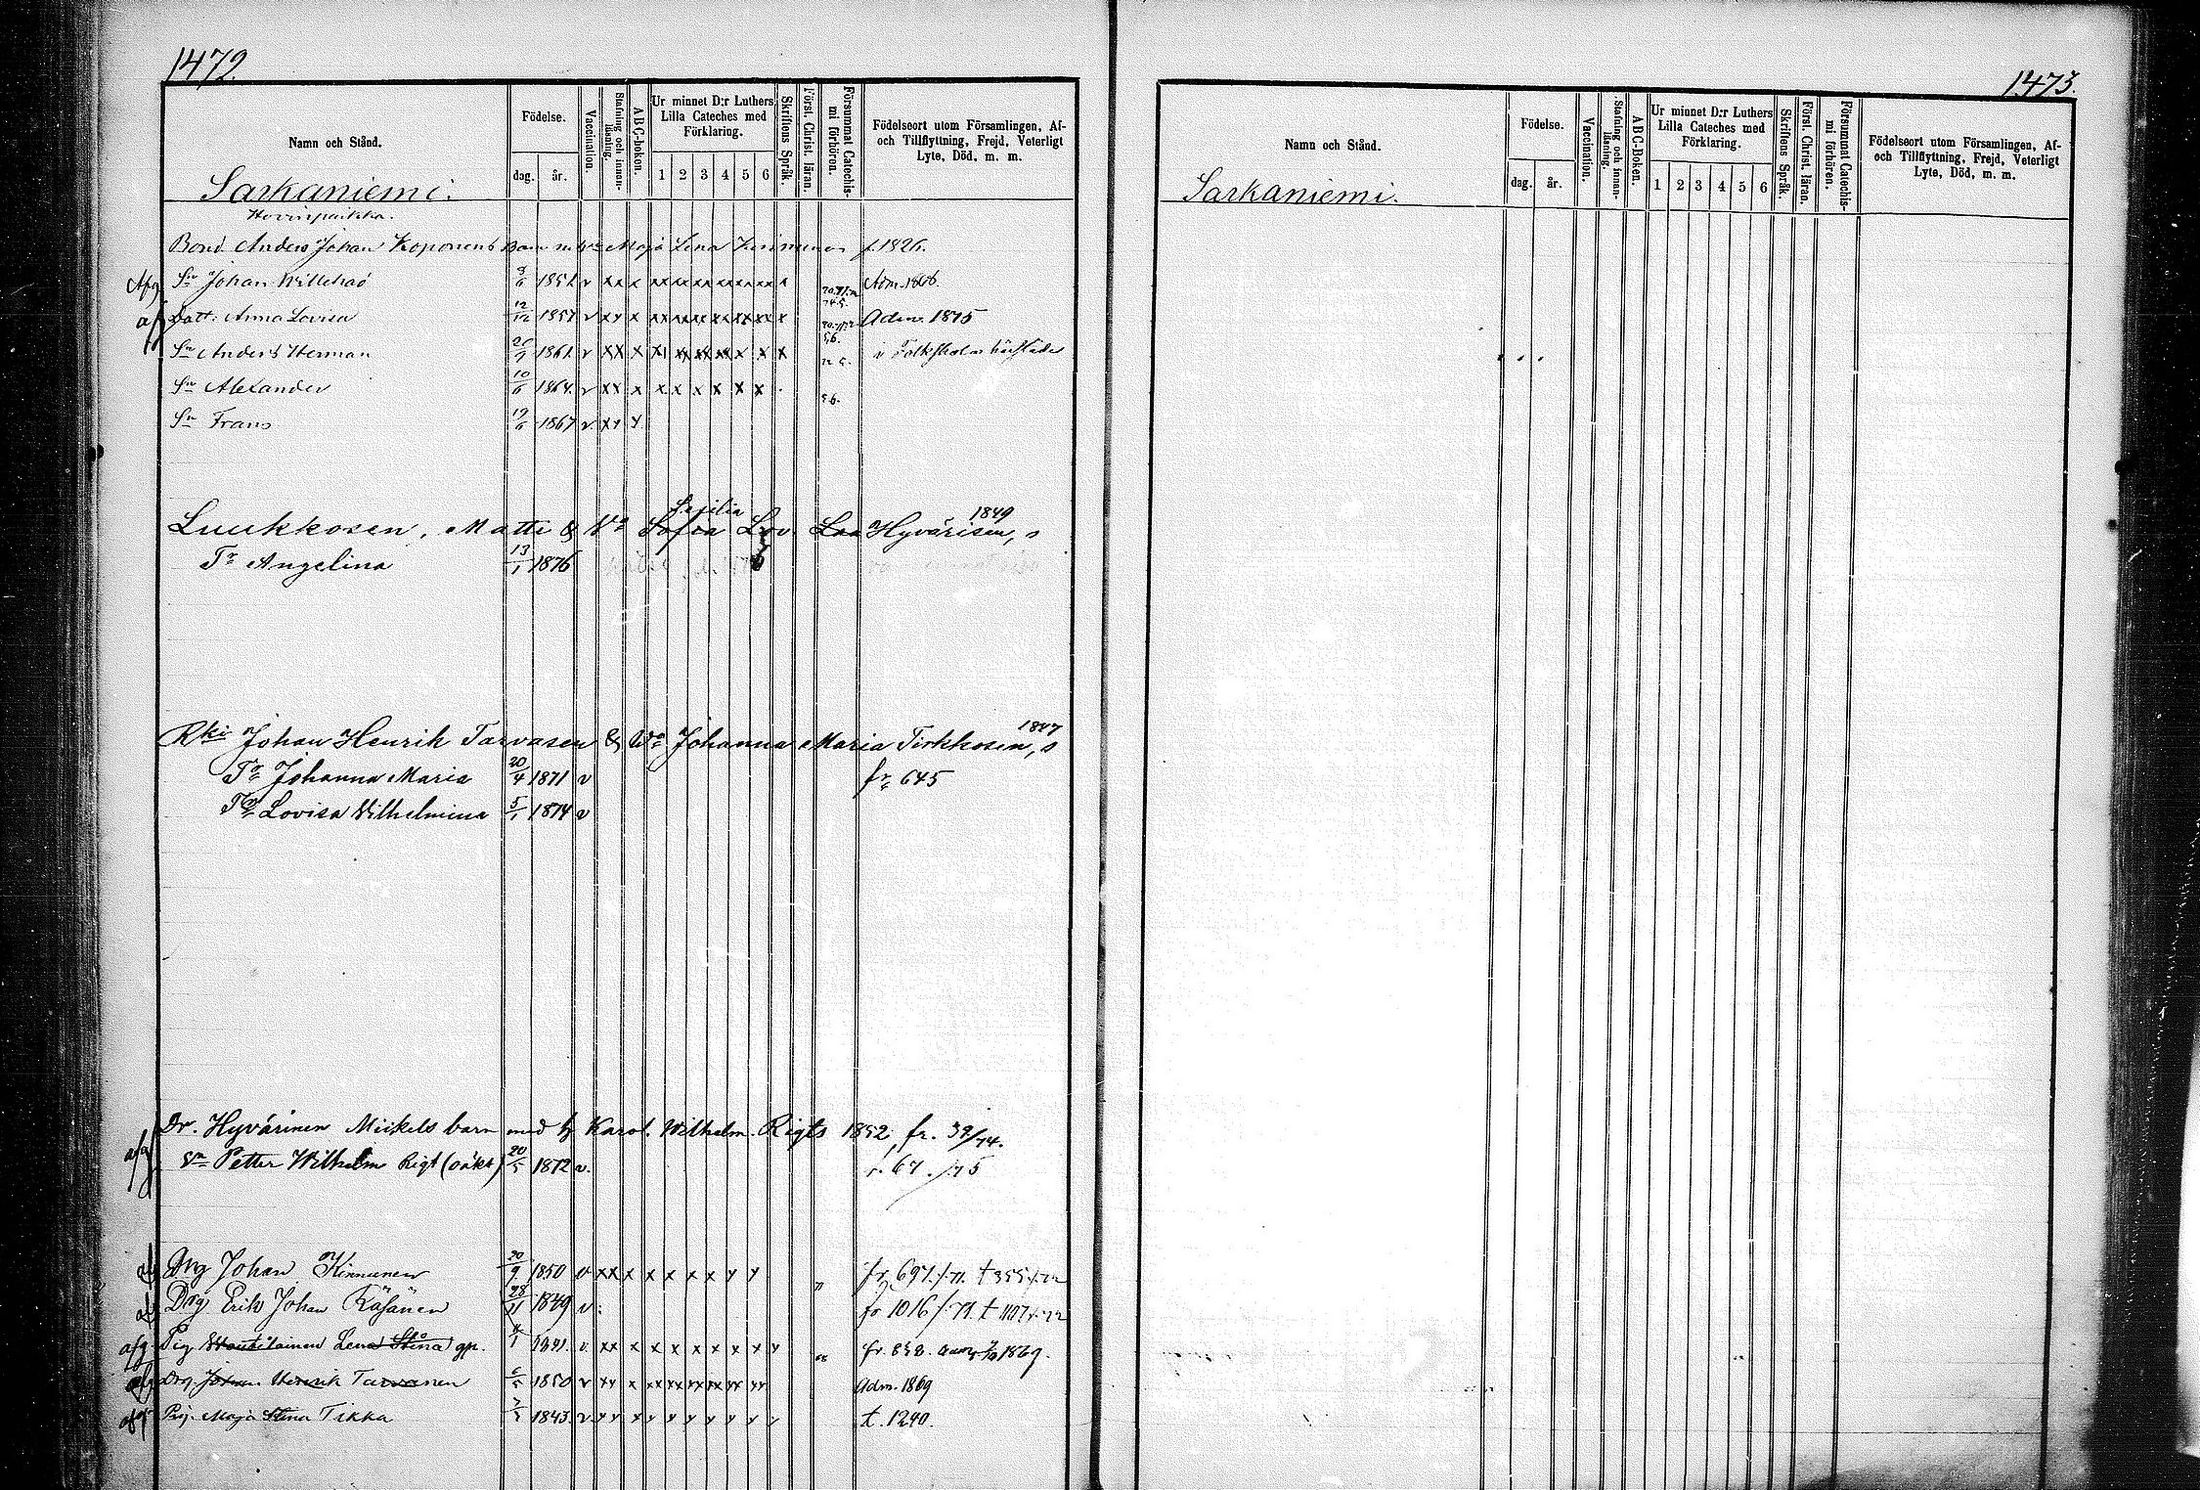 1472
Namn och Stånd.
Födelse.
dag. år.
Vaccination.
Stafning och innan-läsning.
A B C-boken.
Ur minnet D:r Luthers Lilla Cateches med Förklaring.
1 2 3 4 5 6
Skriftens Språk.
Först. Christ. läran.
Försummat Catechis-mi förhören.
Födelseort utom Församlingen, Af-
och Tillflyttning, Frejd, Veterligt
Lyte, Död, m. m.
Sarkaniemi.
Bond. Anders Johan Koponens Barn m. Maja Lena Kinnunen f. 1826.
Sn Johan 8/6 1851 v xx x xx xx xx xx xx xx x Adm. 1868.
af Dott. Anna Lovisa 12/12 1857 v xx x xx xx xx xx xx xx x Adm. 1875
Sn Anders Herman 20/9 1861 v xx x x xx xx xx x x x
Sn Alexander 10/6 1864 v xx x x x x x x x
Sn Frans 19/6 1867 v xx x
Luukkosen, Matti & Vo Sofia Lov. Hyvärisen, s
Cecilia 1849
Tr Angelina 13/1 1876
Rki Johan Henrik Tarvasen & Wo Johanna Maria Tirkkosen, s
1847
Tr Johanna Maria 20/4 1871 v fr 645
Tr Lovisa Wilhelmina 5/1 1874 v
Dr. Hyvärinen Mickels barn med h Karol. Wilhelm. Rigts 1852, fr. 39/74.
afg Sn Petter Wilhelm Rigt (oäkt) 20/5 1872 v. 67./75
Drg Johan Kinnunen 20/9 1850 v xx x x x x x x x fr 697./71. t 355./72
Drg Erik Johan Räsänen 28/11 1849 v. fr 1016/71. t 1107./72
afg Pig Lena Stina gp. 1841. v. xx x x x x x x x fr. 838. 1869.
afg Drg Johan Henrik Tarvanen 6/5 1850 v xx x xx xx xx xx xx xx Adm. 1869
afg Pig. Maja Stina Tikka 1843. v x x x x x x x x x t. 1290.
1473.
Namn och Stånd.
Födelse.
dag. år.
Vaccination.
Stafning och innan-läsning.
A B C-Boken.
Ur minnet D:r Luthers Lilla Cateches med Förklaring.
1 2 3 4 5 6
Skriftens Språk.
Först. Christ. läran.
Försummat Catechis-mi förhören.
Födelseort utom Församlingen, Af-
och Tillflyttning, Frejd, Veterligt
Lyte, Död, m. m.
Sarkaniemi.